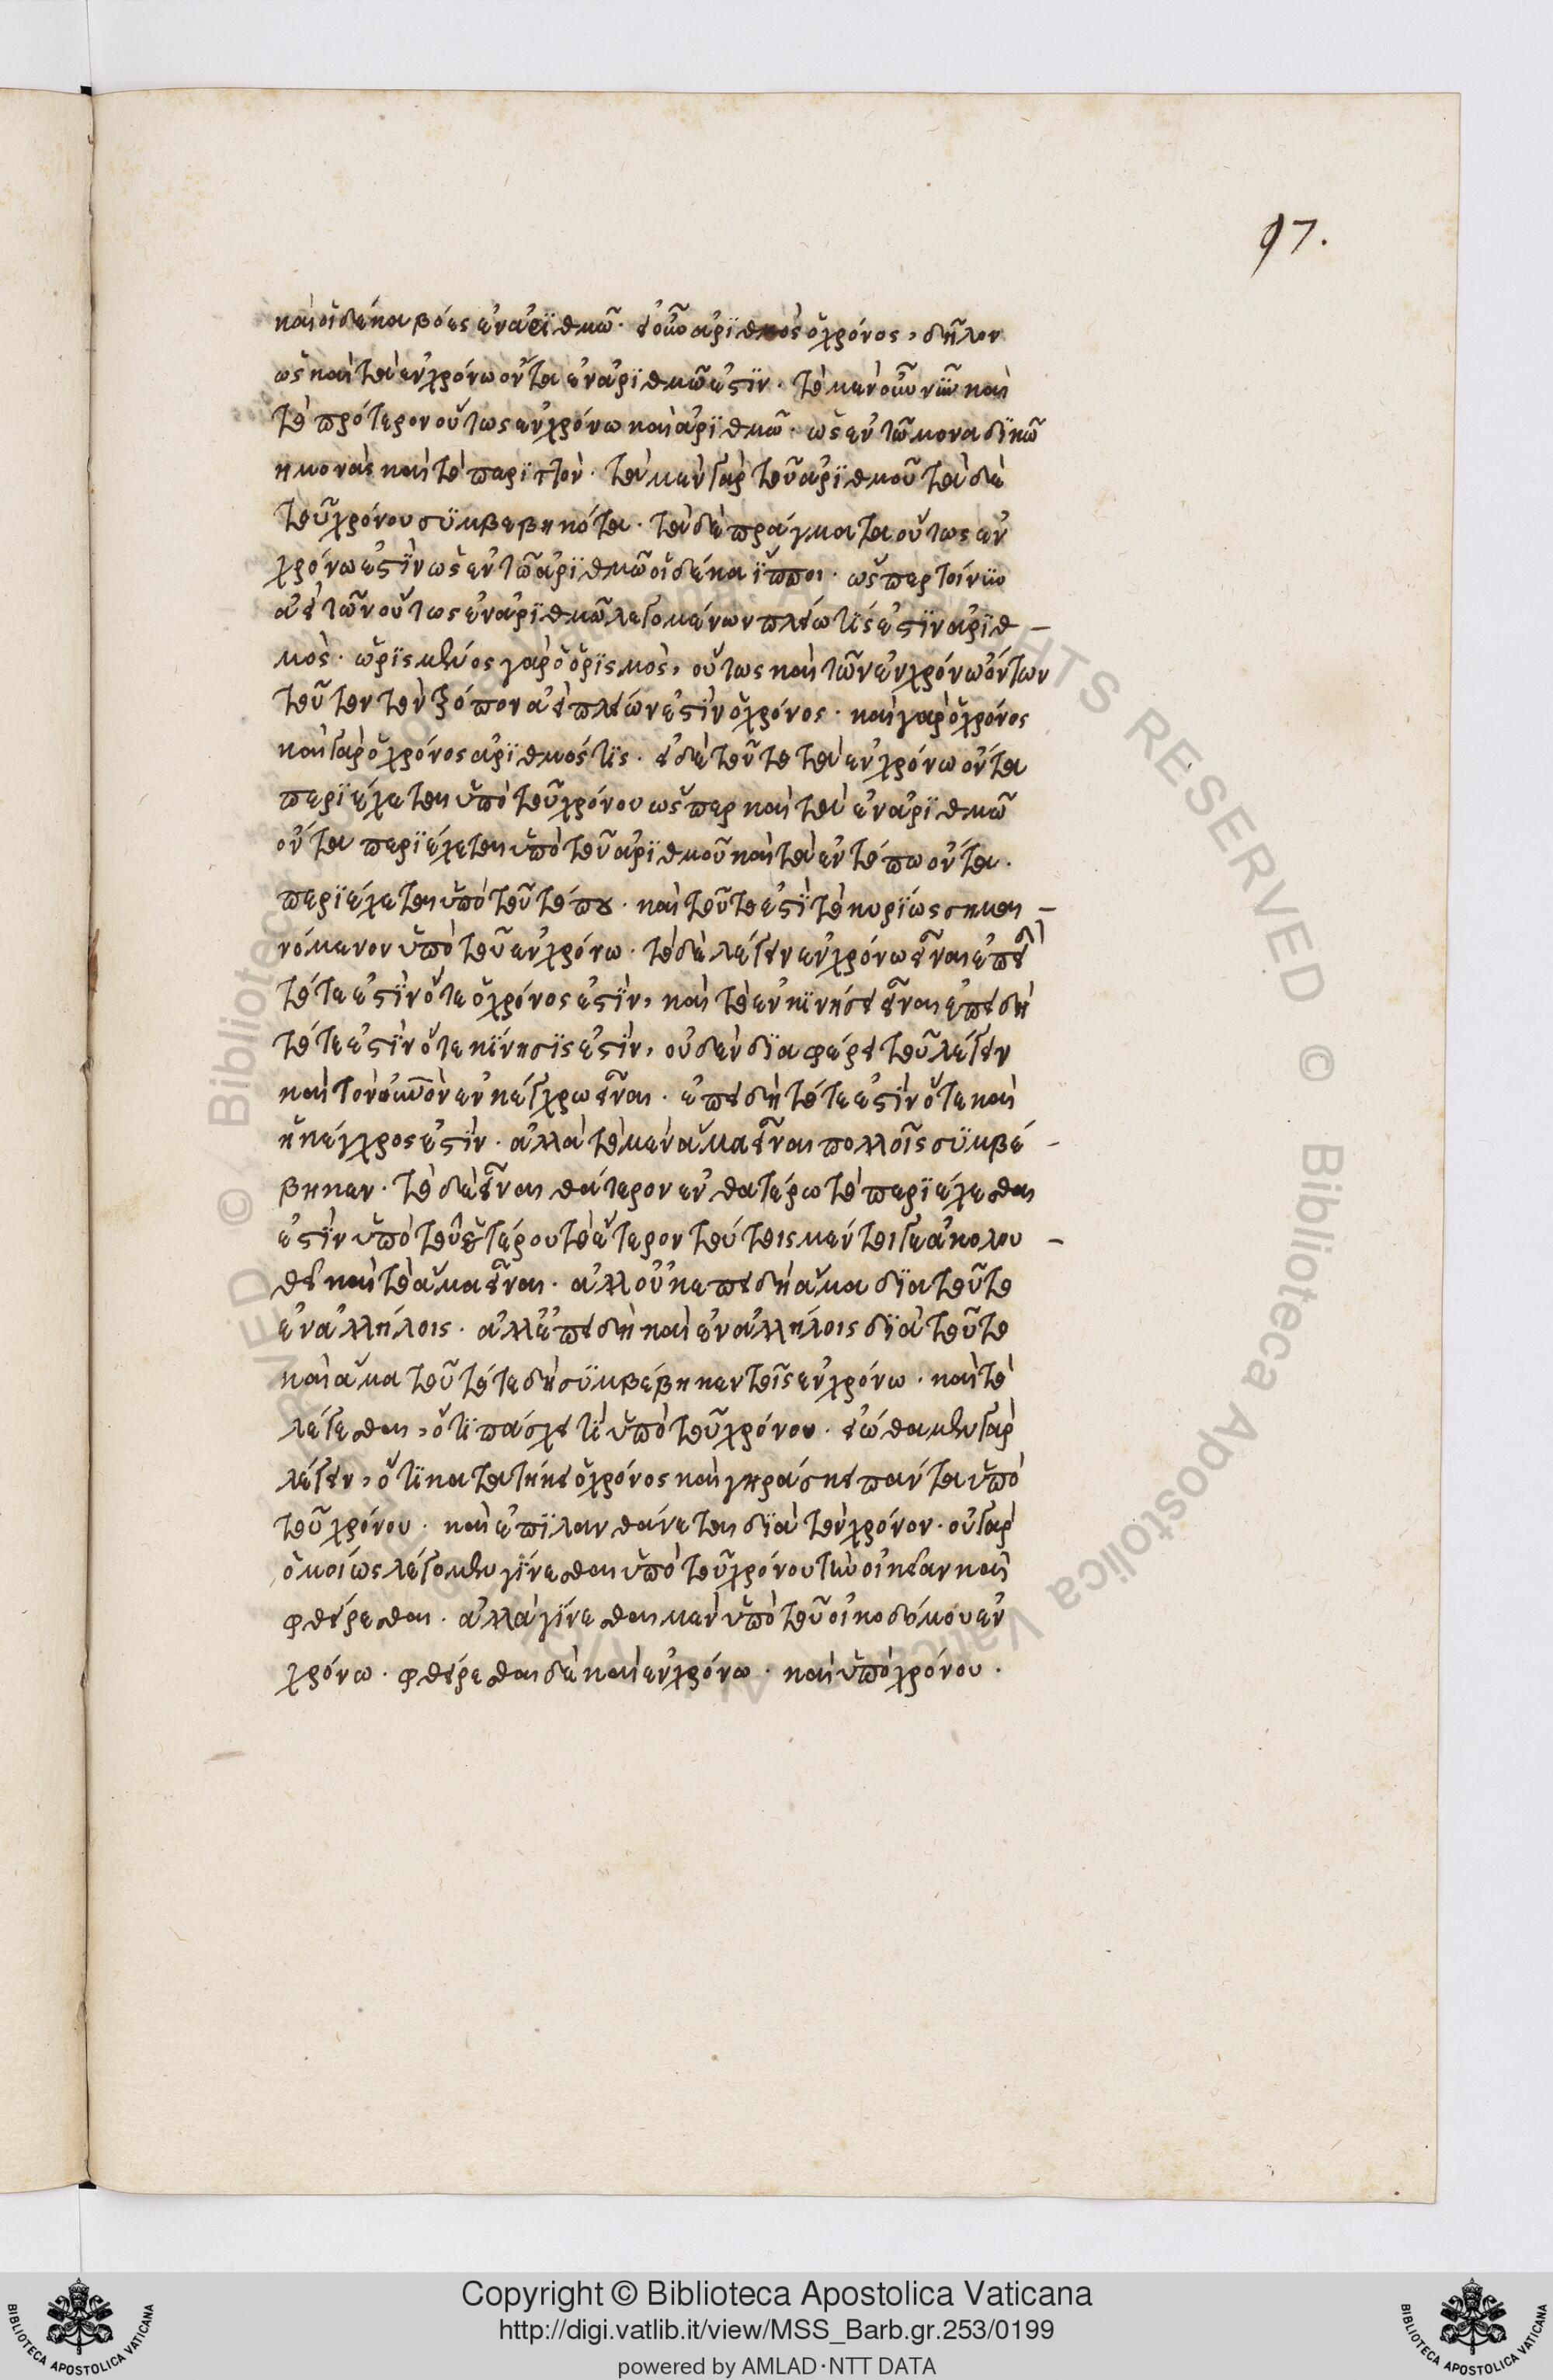 97.
καὶ οἱ δέκα βόες ἐν ἀρϊθμῶ. εἰ οὖν ὁ ἀρϊθμὸς ὁ χρόνος, δῆλον
ὡς καὶ τὰ ἐν χρόνω ὄντα ἐν ἀρϊθμῶ ἐστϊν. τὸ μὲν οὖν νῦν καὶ
τὸ πρότερον οὕτως ἐν χρόνω καὶ ἀρϊθμῶ. ὡς ἐν τῶ μοναδϊκῶ
ἡ μονὰς καὶ τὸ παρϊττόν. τὰ μὲν γὰρ τοῦ ἀρϊθμοῦ τὰ δὲ
τοῦ χρόνου συμβεβηκότα. τὰ δὲ πράγματα οὕτως ἐν
χρόνω ἐστὶν ὡς ἐν τῶ ἀρϊθμῶ οἱ δέκα ἵπποι. ὥσπερ τοίνυν
ἀεὶ τῶν οὕτως ἐν ἀρϊθμῶ λεγομένων πλείω τίς ἐστϊν ἀρϊθ-
μὸς. ὡρϊσμένος γὰρ ὁ ὁρϊσμὸς, οὕτως καὶ τῶν ἐν χρόνω ὄντων
τοῦτον τὸν τρόπον ἀεὶ πλείων ἐστὶν ὁ χρόνος. καὶ γὰρ ὁ χρόνος
καὶ γὰρ ὁ χρόνος ἀρϊθμός τϊς. εἰ δὲ τοῦτο τὰ ἐν χρόνω ὄντα
περϊέχεται ὑπὸ τοῦ χρόνου ὥσπερ καὶ τὰ ἐν ἀρϊθμῶ
ὄντα περϊέχεται ὑπὸ τοῦ ἀρϊθμοῦ καὶ τὰ ἐν τόπω ὄντα.
περϊέχεται ὑπὸ τοῦ τόπου. καὶ τοῦτο ἐστϊ τὸ κυρϊώς σημαι-
νόμενον ὑπὸ τοῦ ἐν χρόνω. τὸ δὲ λέγειν ἐν χρόνω εἶναι ἐπεὶ
τότε ἐστϊν ὅτε ὁ χρόνος ἐστϊν, καὶ τὸ ἐν κϊνήσει εἶναι ἐπειδὴ
τότε ἐστὶν ὅτε κϊνησϊς ἐστϊν, οὐδὲν δϊαφέρει τοῦ λέγειν
καὶ τὸν οὐνον ἐν κέγχρω εἶναι. ἐπειδὴ τότε ἐστὶν ὅτε καὶ
ἡ κέγχρος ἐστϊν. ἀλλὰ τὸ μὲν ἅμα εἶναι πολλοῖς συμβέ-
βηκεν. τὸ δὲ εἶναι θάτερον ἐν θατέρω τὸ περϊέχεσθαι
ἐστϊν ὑπὸ τοῦ ἑτέρου τὸ ἕτερον τούτοις μέντοι γε ἀκολου-
θεῖ καὶ τὸ ἅμα εἶναι. ἀλλ οὐκ ἐπειδὴ ἅμα δϊα τοῦτο
ἐν ἀλλήλοις. ἀλλ ἐπειδὴ καὶ ἐν ἀλλήλοις δϊὰ τοῦτο
καὶ ἅμα τοῦτό τε δὴ συμβέβηκεν τοῖς ἐν χρόνω. καὶ τὸ
λέγεσθαι, ὅτϊ πάσχει τϊ ὑπὸ τοῦ χρόνου. εἰώθαμεν γὰρ
λέγειν, ὅτϊ κατατήκει ὁ χρόνος καὶ γηράσκει πάντα ὑπὸ
τοῦ χρόνου. καὶ ἐπϊλανθάνεται δϊὰ τὸν χρόνον. οὐ γὰρ
ὁμοίως λέγομεν γϊνεσθαι ὑπὸ τοῦ χρόνου τὴν οἰκείαν καὶ
φθείρεσθαι. ἀλλὰ γϊνεσθαι μὲν ὑπὸ τοῦ οἰκοδόμου ἐν
χρόνω. φθείρεσθαι δὲ καὶ ἐν χρόνω. καὶ ὑπὸ χρόνου.
Copyright © Biblioteca Apostolica Vaticana
http://digi.vatlib.it/view/MSS_Barb.gr.253/0199
powered by AMLAD·NTT DATA